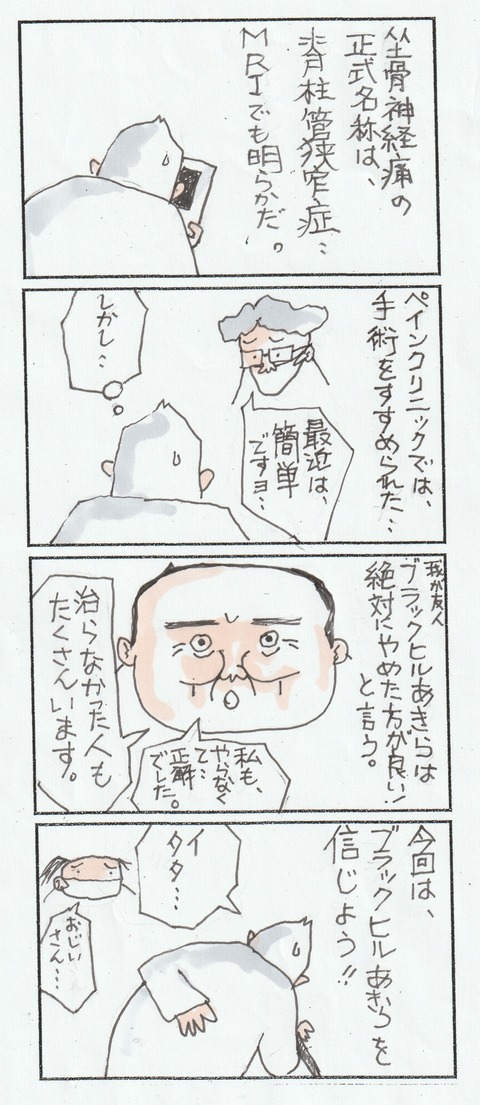 坐骨神経痛の
正式名称は、
脊柱管狭窄症…
MRIでも明らかだ。
ペインクリニックでは、
手術をすすめられた…
最近は、
簡単
ですヨ…
しかし…
我が友人
ブラックヒルあきらは
絶対にやめた方が良い!
と言う。
私も、
やらなく
て…
正解
でした。
治らなかった人も
たくさんいます。
今回は、
ブラックヒルあきらを
信じよう!!
イ
タタ…
おじい
さん…